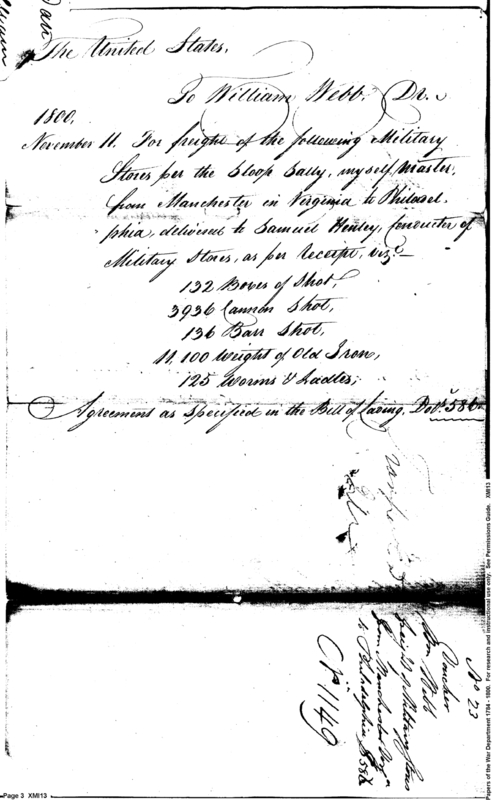 The United States,
To William Webb. Dr.
1800.
November 11. For freight of the following Military
Stores per the Sloop Sally, myself Master,
from Manchester in Virginia to Philadel.
phia, delivered to Samuel Henley, Conducter of
Military Stores, as per Receipt, viz.
132 Boxes of Shot,
3936 Cannon Shot,
136 Barr Shot,
11,100 Weight of Old Iron,
125 Worms & Ladles,
Agreement as Specified in the Bill of Lading, Dols. 586
No 23
Voucher
Wm Webb
freight of Military Stores
from Manchester
to Philadelphia $586
1149
Page 3 XMI13
Papers of the War Department 1784 - 1800. For research and instructional use only. See Permissions Guide. XMI13